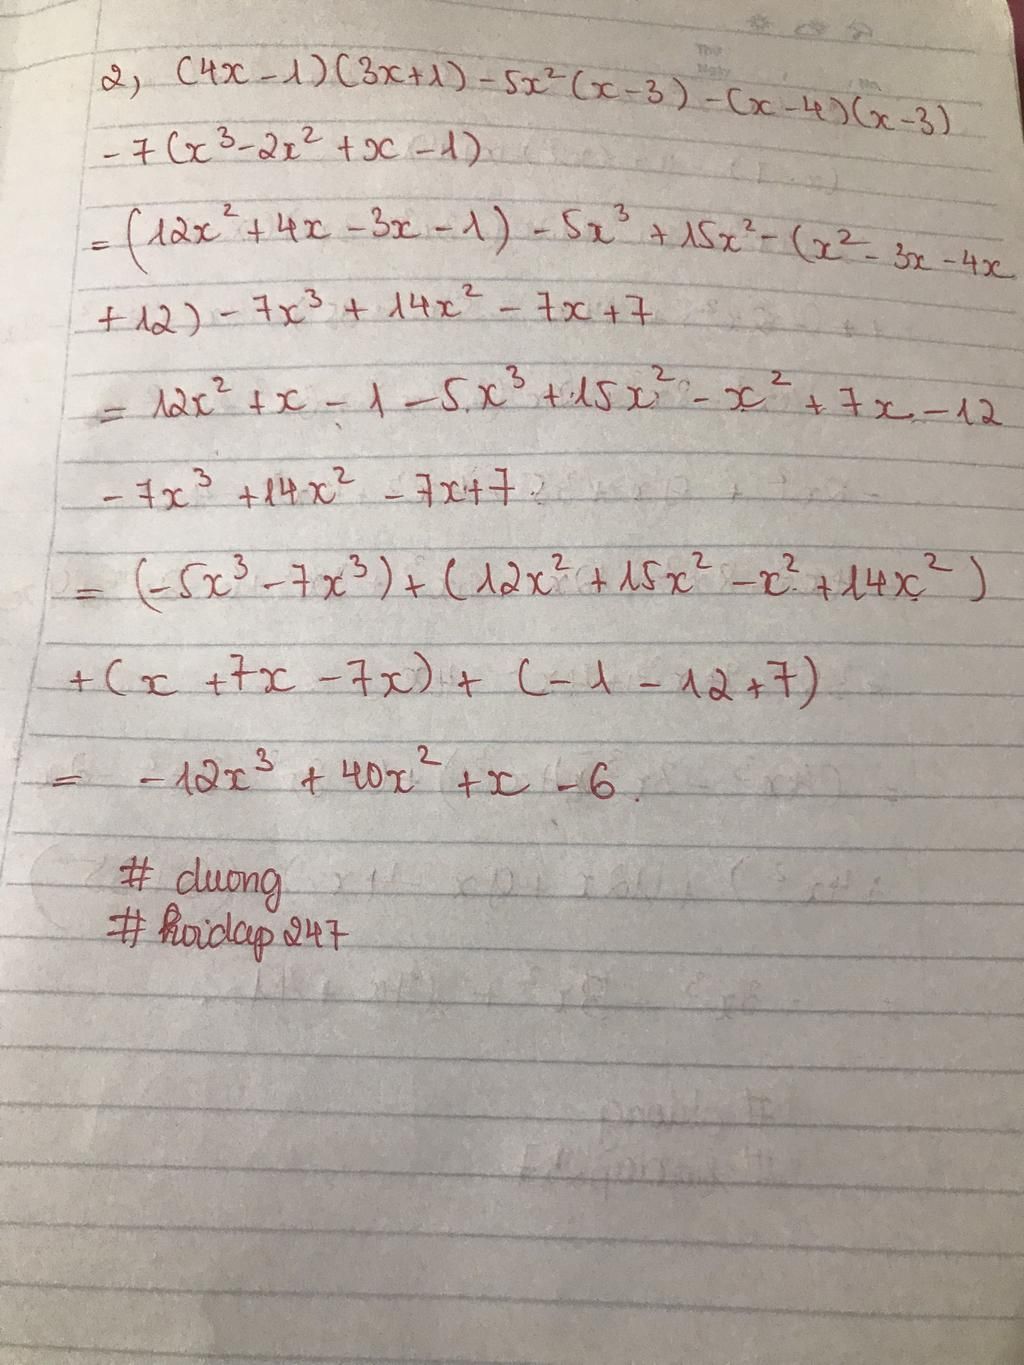 2, (4x - 1)(3x + 1) - 5x² (x - 3) - (x - 4)(x - 3)
- 7 (x³ - 2x² + x - 1)
= (12x² + 4x - 3x - 1) - 5x³ + 15x² - (x² - 3x - 4x
+ 12) - 7x³ + 14x² - 7x + 7
= 12x² + x - 1 - 5x³ + 15x² - x² + 7x - 12
- 7x³ + 14x² - 7x + 7
= (-5x³ - 7x³) + (12x² + 15x² - x² + 14x²)
+ (x + 7x - 7x) + (-1 - 12 + 7)
= -12x³ + 40x² + x - 6.
# duong
# hoidap247